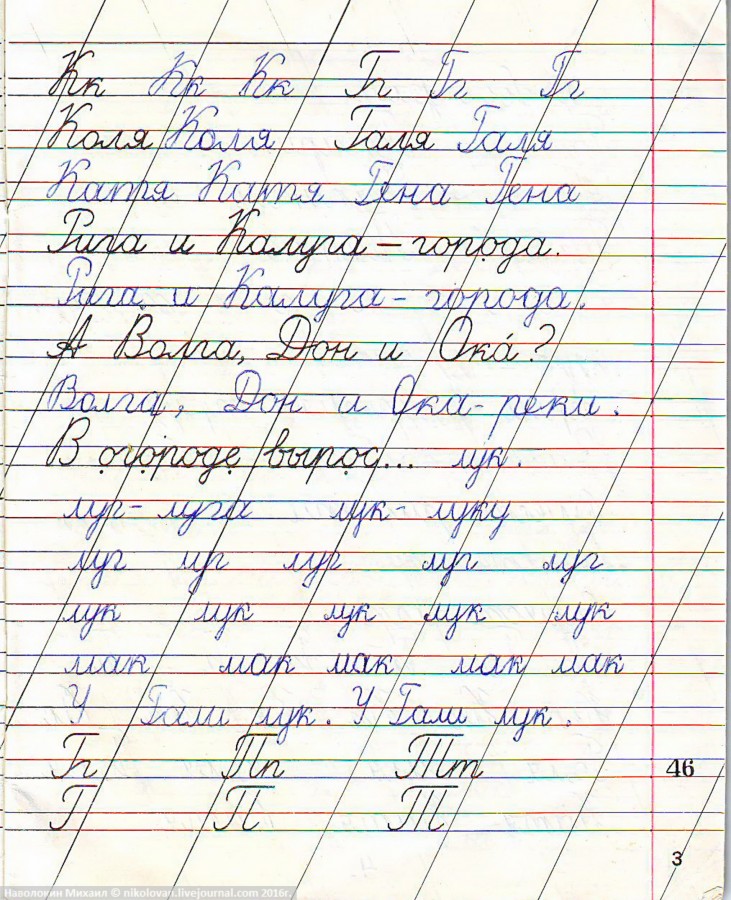 Кк Кк Кк Гг Гг Гг
Коля Коля Галя Галя
Катя Катя Гена Гена
Рига и Калуга – города.
Рига и Калуга - города.
А Волга, Дон и Ока́?
Волга, Дон и Ока - реки.
В огороде вырос... лук.
луг - луга лук - луку
луг луг луг луг луг
лук лук лук лук лук
мак мак мак мак мак
У Гали лук. У Гали лук.
Гг Пп Тт
46
Г П Т
3
Наволокин Михаил © nikolovan.livejournal.com 2016г.